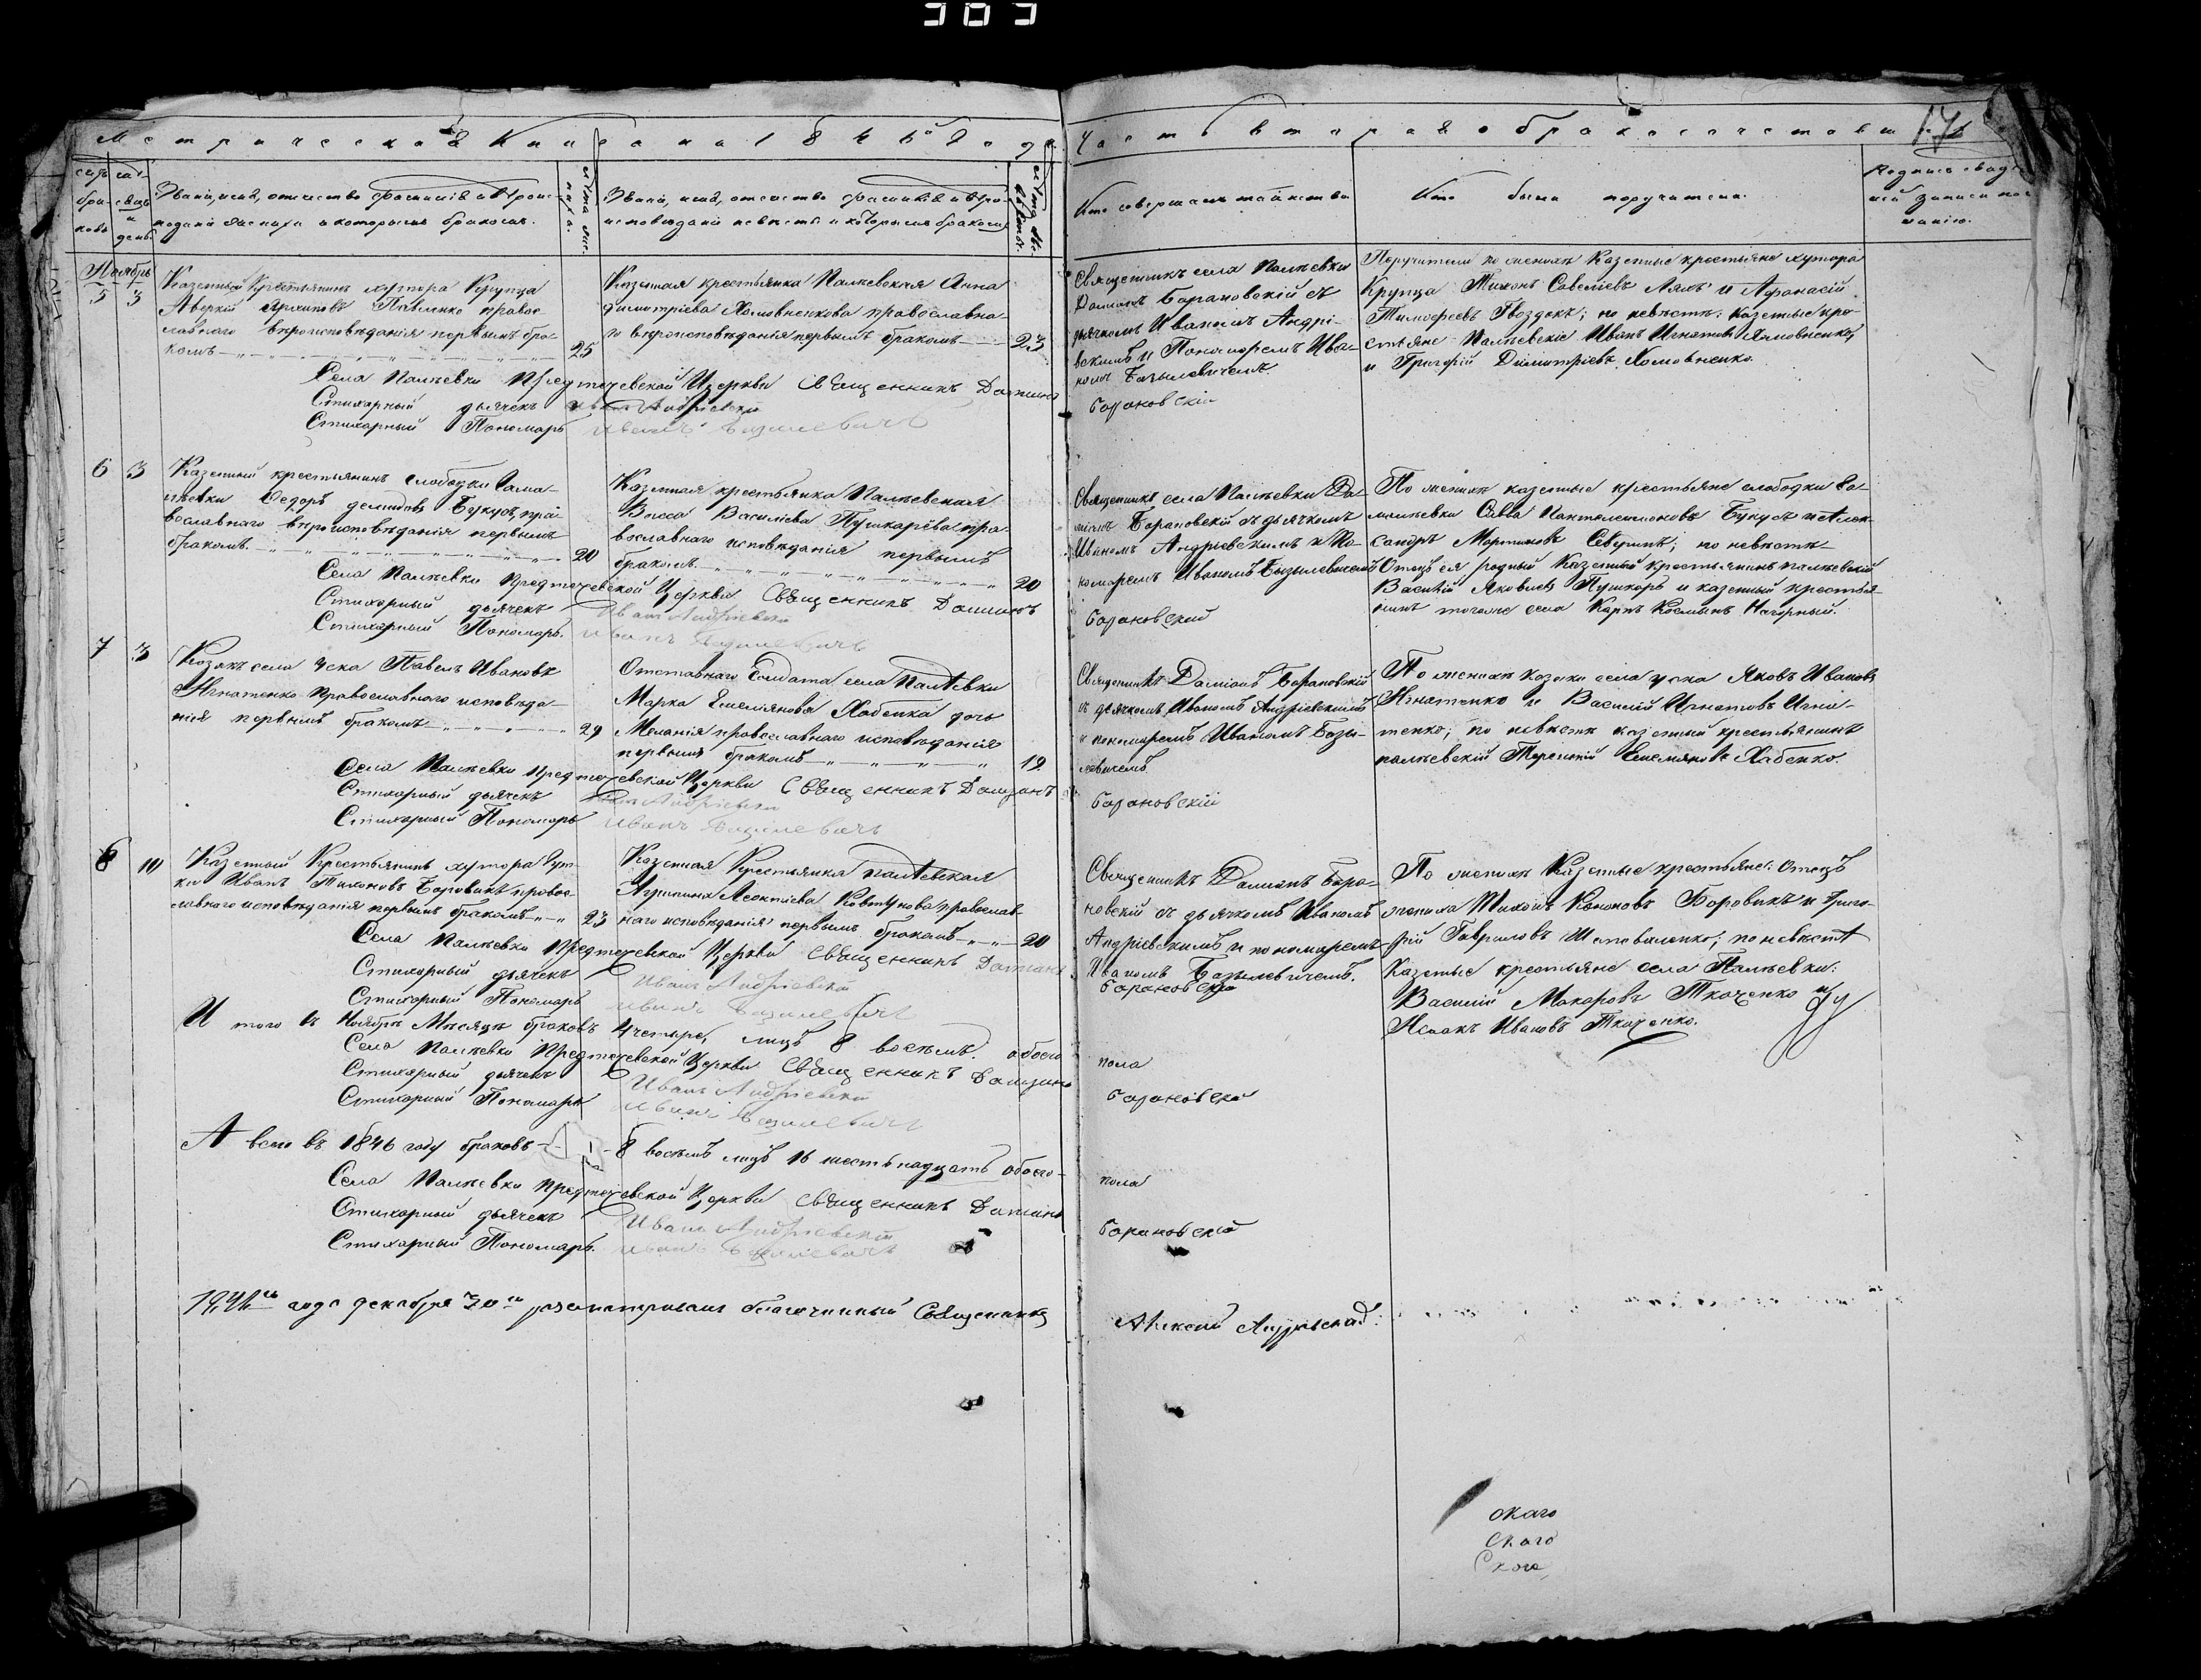 303
Метрической Книги на 1846й Года
Часть вторая о бракосочетавшихся
176
счетъ браковъ
месяцъ и день
Званіе, имя, отчество, фамилія и вѣроисповѣданіе жениха и которымъ бракомъ.
лѣта жениха.
Званіе, имя, отчество, фамилія и вѣроисповѣданіе невѣсты и которымъ бракомъ
лѣта невѣсты.
Кто совершалъ таинство
Кто были поручители.
Подпись свидѣтелей записи по желанію.
Ноябрь
5 3
Казенный Крестьянинъ хутора Крупца
Аверкій Архиповъ Павленко правос-
лавнаго вѣроисповѣданія первымъ бра-
комъ 25
Казенная крестьянка Палѣевская Анна
Димитріева Холовненкова православна-
го вѣроисповѣданія первымъ бракомъ 23
Священникъ села Палѣевки
Даміанъ Барановскій съ
дьячкомъ Иваномъ Андрі-
евскимъ и Пономаремъ Ива-
номъ Базылевичемъ.
Поручители по женихѣ Казенные крестьяне хутора
Крупца Тихонъ Савеліевъ Ляхъ и Афанасій
Тимофеевъ Гвоздекъ; по невѣстѣ: казенные кре-
стьяне Палѣевскіе Иванъ Игнатовъ Холовненко,
и Григорій Димитріевъ Холовненко.
Села Палѣевки Предтечевской Церкви Священникъ Даміанъ Барановскій
Стихарный дьячекъ Иванъ Андріевскій
Стихарный Пономарь Иванъ Базилевичъ
6 3
Казенный крестьянинъ слободки Гама-
лѣевки Федоръ Демидовъ Букусъ, пра-
вославнаго вѣроисповѣданія первымъ
бракомъ. 20
Казенная крестьянка Палѣевская
Васса Василіева Пушкарева пра-
вославнаго исповѣданія первымъ
бракомъ 20
Священникъ села Палѣевки Да-
міанъ Барановскій съ дьячкомъ
Иваномъ Андріевскимъ и По-
номаремъ Иваномъ Базылевичемъ
По женихѣ казенные крестьяне слободки Га-
малѣевки Савва Пантелеимоновъ Букусъ и Алек-
сандръ Мартиновъ Северинъ; по невѣстѣ
Отецъ ея родный Казенный крестьянинъ палѣевскій
Василій Яковлевъ Пушкарь и казенный крестья-
нинъ тогоже села Карпъ Косминъ Нагорный.
Села Палѣевки Предтечевской Церкви Священникъ Даміанъ Барановскій
Стихарный дьячекъ Иванъ Андріевскій
Стихарный Пономарь. Иванъ Базилевичъ
7 3
Козакъ села Уска Павелъ Ивановъ
Игнатенко Православнаго исповѣда-
нія первымъ бракомъ 29
Отставнаго Солдата села Палѣевки
Марка Емельянова Хабенка дочь
Меланія православнаго исповѣданія
первымъ бракомъ 19
Священникъ Даміанъ Барановскій
съ дьячкомъ Иваномъ Андріевскимъ
и пономаремъ Иваномъ Базы-
левичемъ
По женихѣ козаки села Уска Яковъ Ивановъ
Игнатенко и Василій Игнатовъ Игна-
тенко; по невѣстѣ казенный крестьянинъ
палѣевскій Терентій Емельяновъ Хабенко.
Села Палѣевки Предтечевской Церкви Священникъ Даміанъ Барановскій
Стихарный дьячекъ Иванъ Андріевскій
Стихарный Пономарь Иванъ Базилевичъ
8 10
Казенный Крестьянинъ хутора Гут-
ки Иванъ Тихоновъ Боровикъ правос-
лавнаго исповѣданія первымъ бракомъ 23
Казенная Крестьянка палѣевская
Агрипина Леонтіева Ковтунова православ-
наго исповѣданія первымъ бракомъ 20
Священникъ Даміанъ Бара-
новскій съ дьячкомъ Иваномъ
Андріевскимъ и пономаремъ
Иваномъ Базылевичемъ.
По женихѣ Казенные крестьяне: Отецъ
жениха Тихонъ Кононовъ Боровикъ и Григо-
рій Гавриловъ Шаповаленко; по невѣстѣ
Казенные крестьяне села Палѣевки:
Василій Макаровъ Ткаченко и
Исаакъ Ивановъ Ткаченко.
Села Палѣевки Предтечевской Церкви Священникъ Даміанъ Барановскій
Стихарный дьячекъ Иванъ Андріевскій
Стихарный Пономарь Иванъ Базилевичъ
И того въ Ноябрѣ Мѣсяцѣ браковъ 4 четыре, лицъ 8 восемь. обоего пола
Села Палѣевки Предтечевской Церкви Священникъ Даміанъ Барановскій
Стихарный дьячекъ Иванъ Андріевскій
Стихарный Пономарь Иванъ Базилевичъ
А всего въ 1846 году браковъ 8 восемь лицъ 16 шестьнадцать обоего пола
Села Палѣевки Предтечевской Церкви Священникъ Даміанъ Барановскій
Стихарный дьячекъ Иванъ Андріевскій
Стихарный Пономарь. Иванъ Базилевичъ
1846го года декабря 30го разсматривалъ благочинный Священникъ Алексій
скаго
скаго
скаго